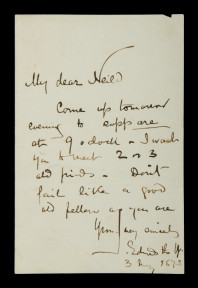 My dear Neild
Come up tomorrow
evening to
at 9 o'clock - I want
you to meet 2 or 3
old friends - Don't
fail like a good
old fellow as you are
Yours very sincerely
3